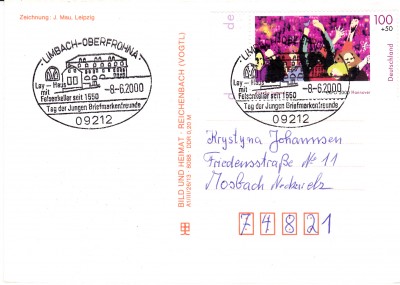 Zeichnung: J. Mau, Leipzig
LIMBACH-OBERFROHNA
Lay-Haus
mit
Felsenkeller seit 1550
-8-6.2000
Tag der Jungen Briefmarkenfreunde
09212
BILD UND HEIMAT REICHENBACH (VOGTL)
A1/III/26/13 · 6088 · DDR 0,20 M
100
+50
Deutschland
de
LIMBACH-OBERFROHNA
Lay-Haus
mit
Felsenkeller seit 1550
-8-6.2000
Tag der Jungen Briefmarkenfreunde
09212
Hannover
Krystyna Johannsen
Friedensstraße No 11
Mosbach Neckarelz
74821